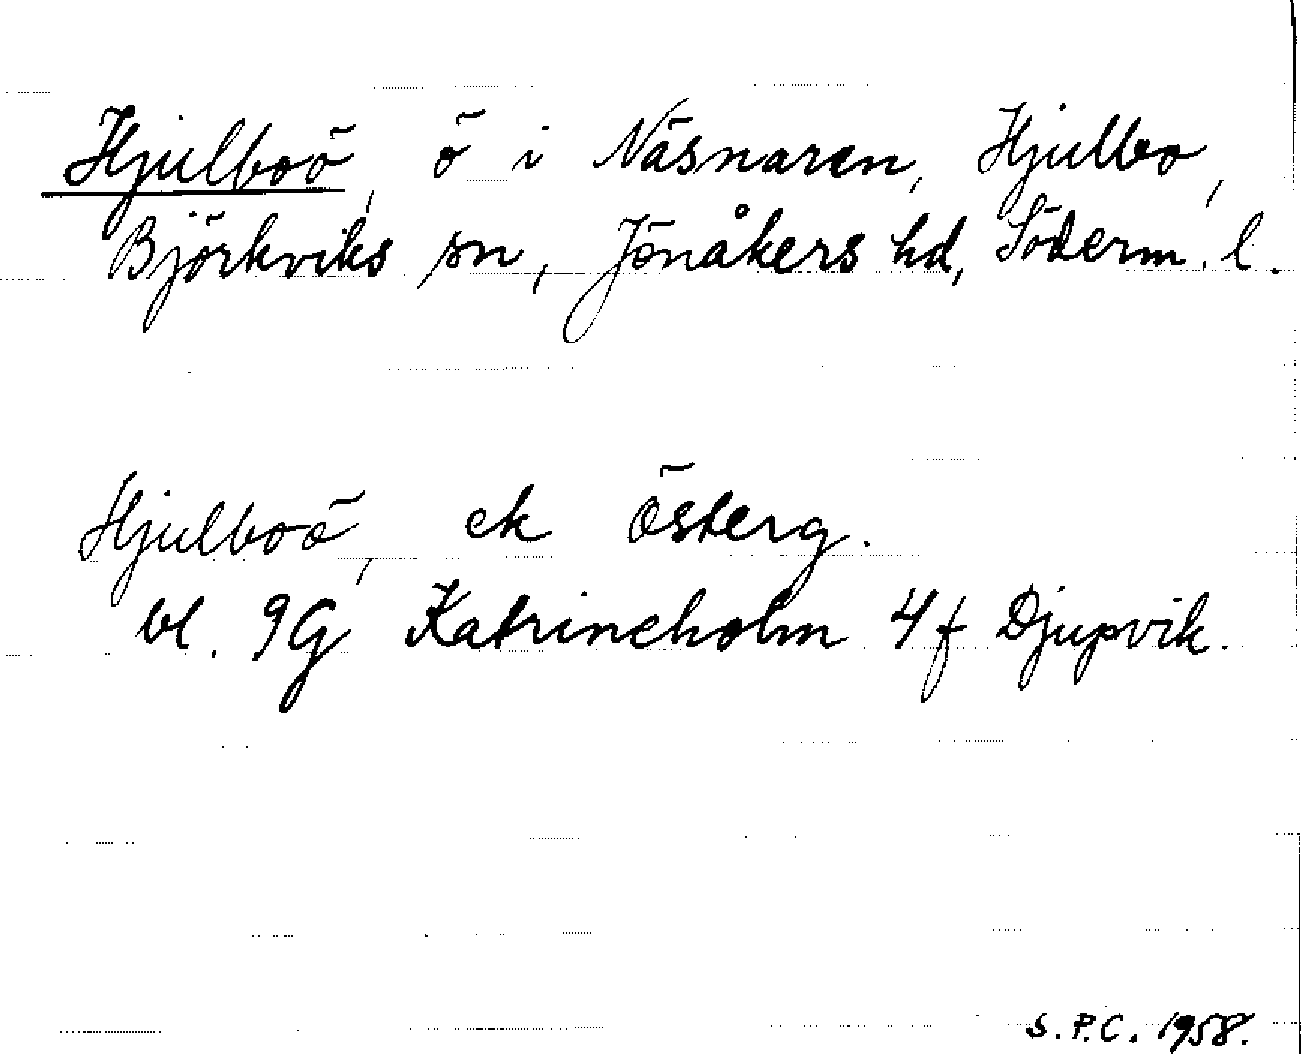 Hjulboö, ö i Näsnaren, Hjulbo,
Björkviks sn, Jönåkers hd, Söderm. l.
Hjulboö, ek Österg.
bl. 9G Katrineholm 4f Djupvik.
S.P.C. 1958.